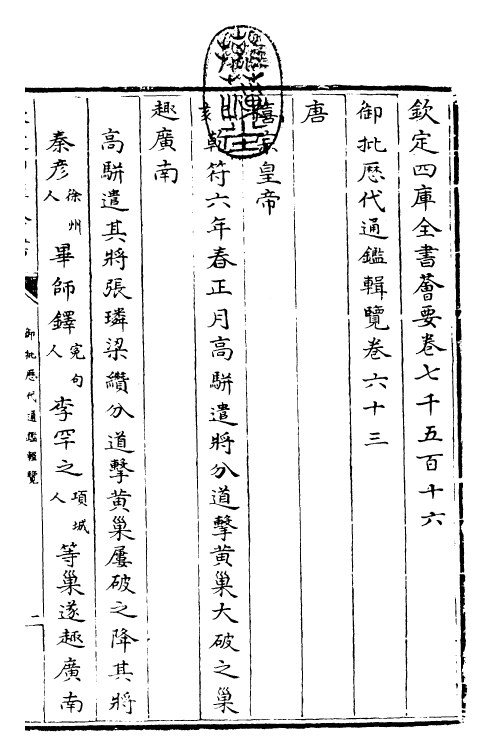 欽定四庫全書薈要卷七千五百十六
御批歷代通鑑輯覽卷六十三
唐
僖宗皇帝
亥乾符六年春正月高駢遣將分道擊黄巢大破之巢
趣廣南
高駢遣其將張璘梁纘分道擊黄巢屢破之降其將
秦彦徐州人畢師鐸寃句人李罕之項城人等巢遂趣廣南
御批歷代通鑑輯覽
一